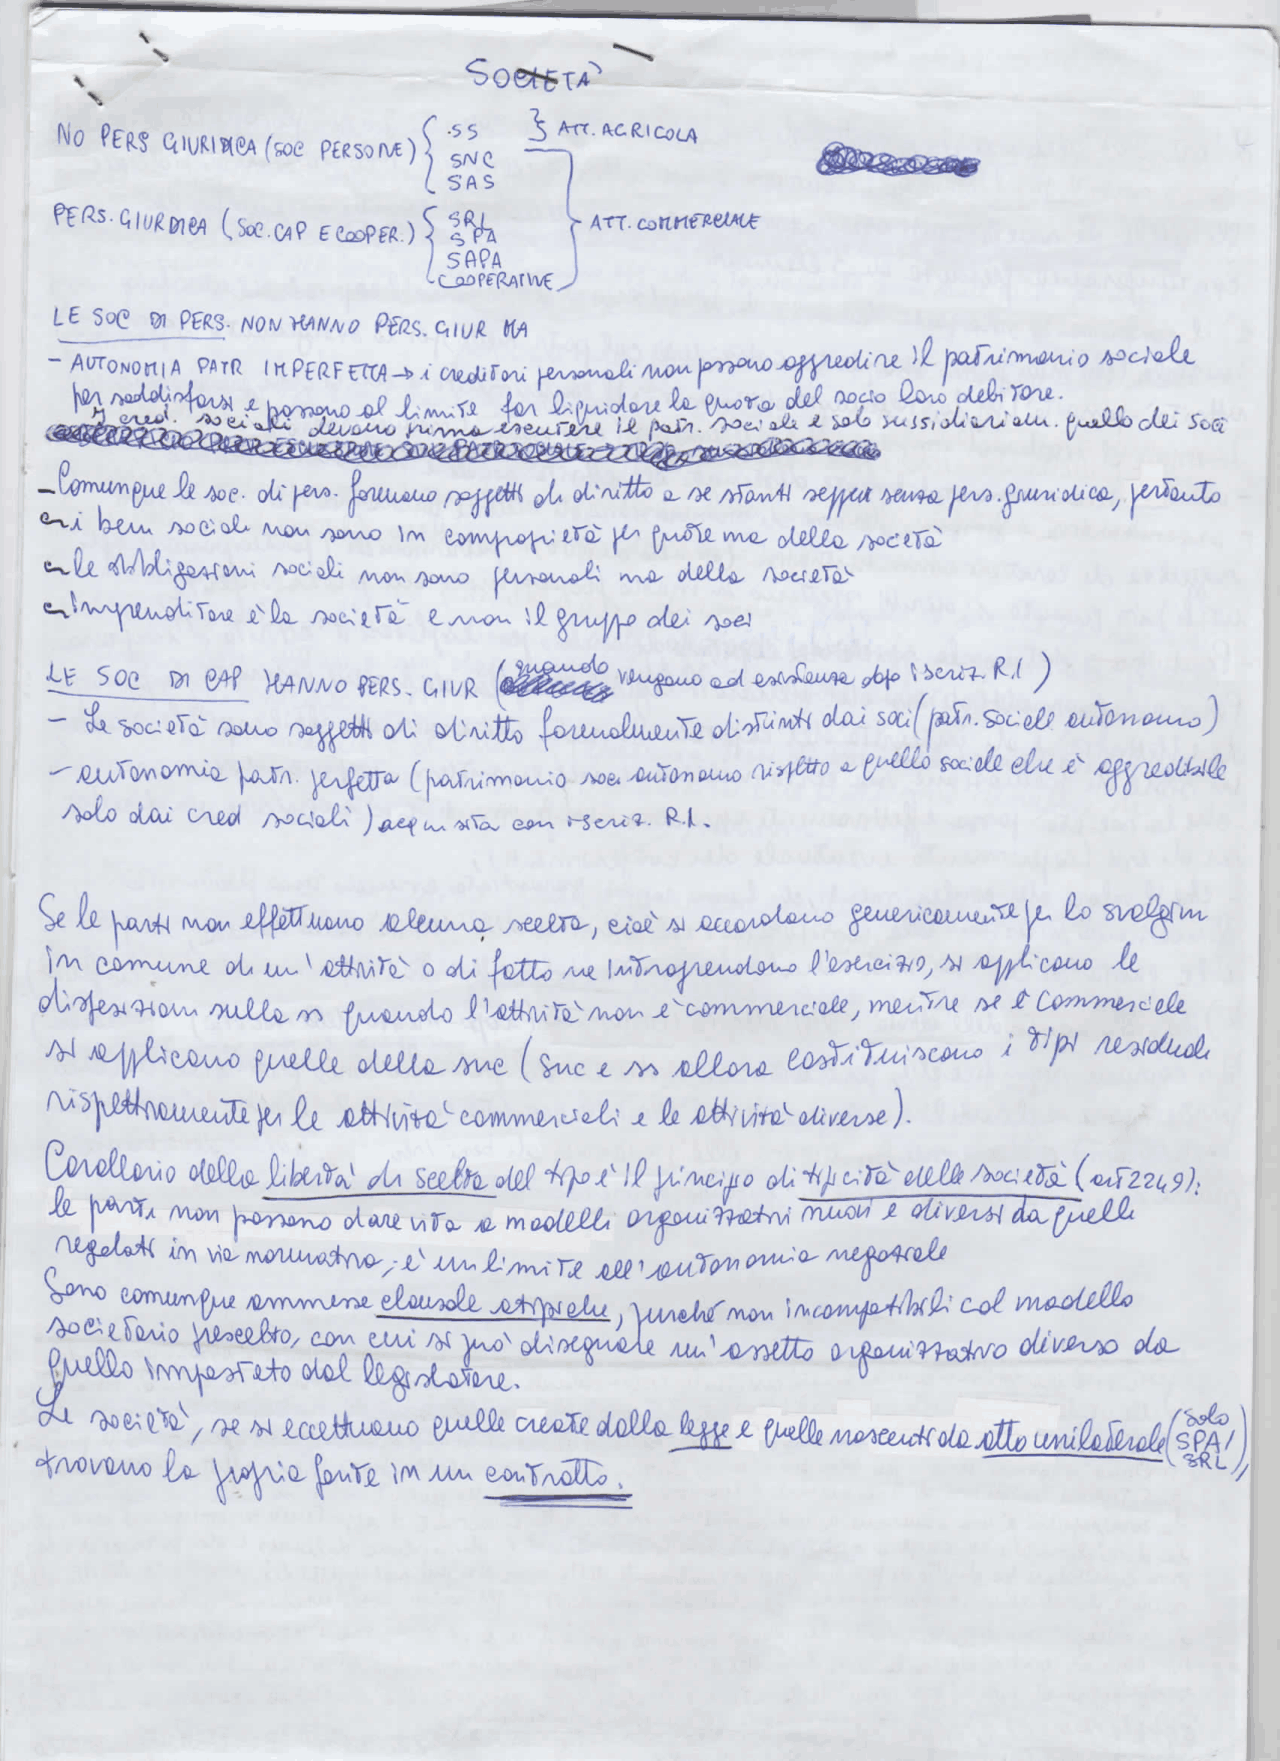 SOCIETÀ
NO PERS GIURIDICA (SOC PERSONE) { .SS } ATT. AGRICOLA
SNC
SAS
PERS. GIURDICA (SOC. CAP E COOPER.) { SRL } ATT. COMMERCIALE
SPA
SAPA
COOPERATIVE
LE SOC DI PERS. NON HANNO PERS. GIUR MA
- AUTONOMIA PATR IMPERFETTA → i creditori personali non possono aggredire il patrimonio sociale
per soddisfarsi e possono al limite far liquidare la quota del socio loro debitore.
I cred. sociali devono prima escutere il patr. sociale e solo sussidiariam. quello dei soci
- Comunque le soc. di pers. formano soggetti di diritto a se stanti seppur senza pers. giuridica, pertanto
i beni sociali non sono in comproprietà per quote ma della società
le obbligazioni sociali non sono personali ma della società
imprenditore è la società e non il gruppo dei soci
LE SOC DI CAP HANNO PERS. GIUR (quando vengono ad esistenza dopo iscriz. R.I.)
- Le società sono soggetti di diritto formalmente distinti dai soci (patr. sociale autonomo)
- autonomia patr. perfetta (patrimonio soci autonomo rispetto a quello sociale che è aggredibile
solo dai cred sociali) acquisita con iscriz. R.I.
Se le parti non effettuano alcuna scelta, cioè si accordano genericamente per lo svolgim
in comune di un' attività o di fatto ne intraprendono l'esercizio, si applicano le
disposizioni sulla ss quando l'attività non è commerciale, mentre se è commerciale
si applicano quelle della snc (snc e ss allora costituiscono i tipi residuali
rispettivamente per le attività commerciali e le attività diverse).
Corollario della libertà di scelta del tipo è il principio di tipicità delle società (art 2249):
le parti non possono dare vita a modelli organizzativi nuovi e diversi da quelli
regolati in via normativa; è un limite all'autonomia negoziale
Sono comunque ammesse clausole atipiche, purché non incompatibili col modello
societario prescelto, con cui si può disegnare un' assetto organizzativo diverso da
quello impostato dal legislatore.
Le società, se si eccettuano quelle create dalla legge e quelle nascenti da atto unilaterale (solo SPA/SRL),
trovano la propria fonte in un contratto.